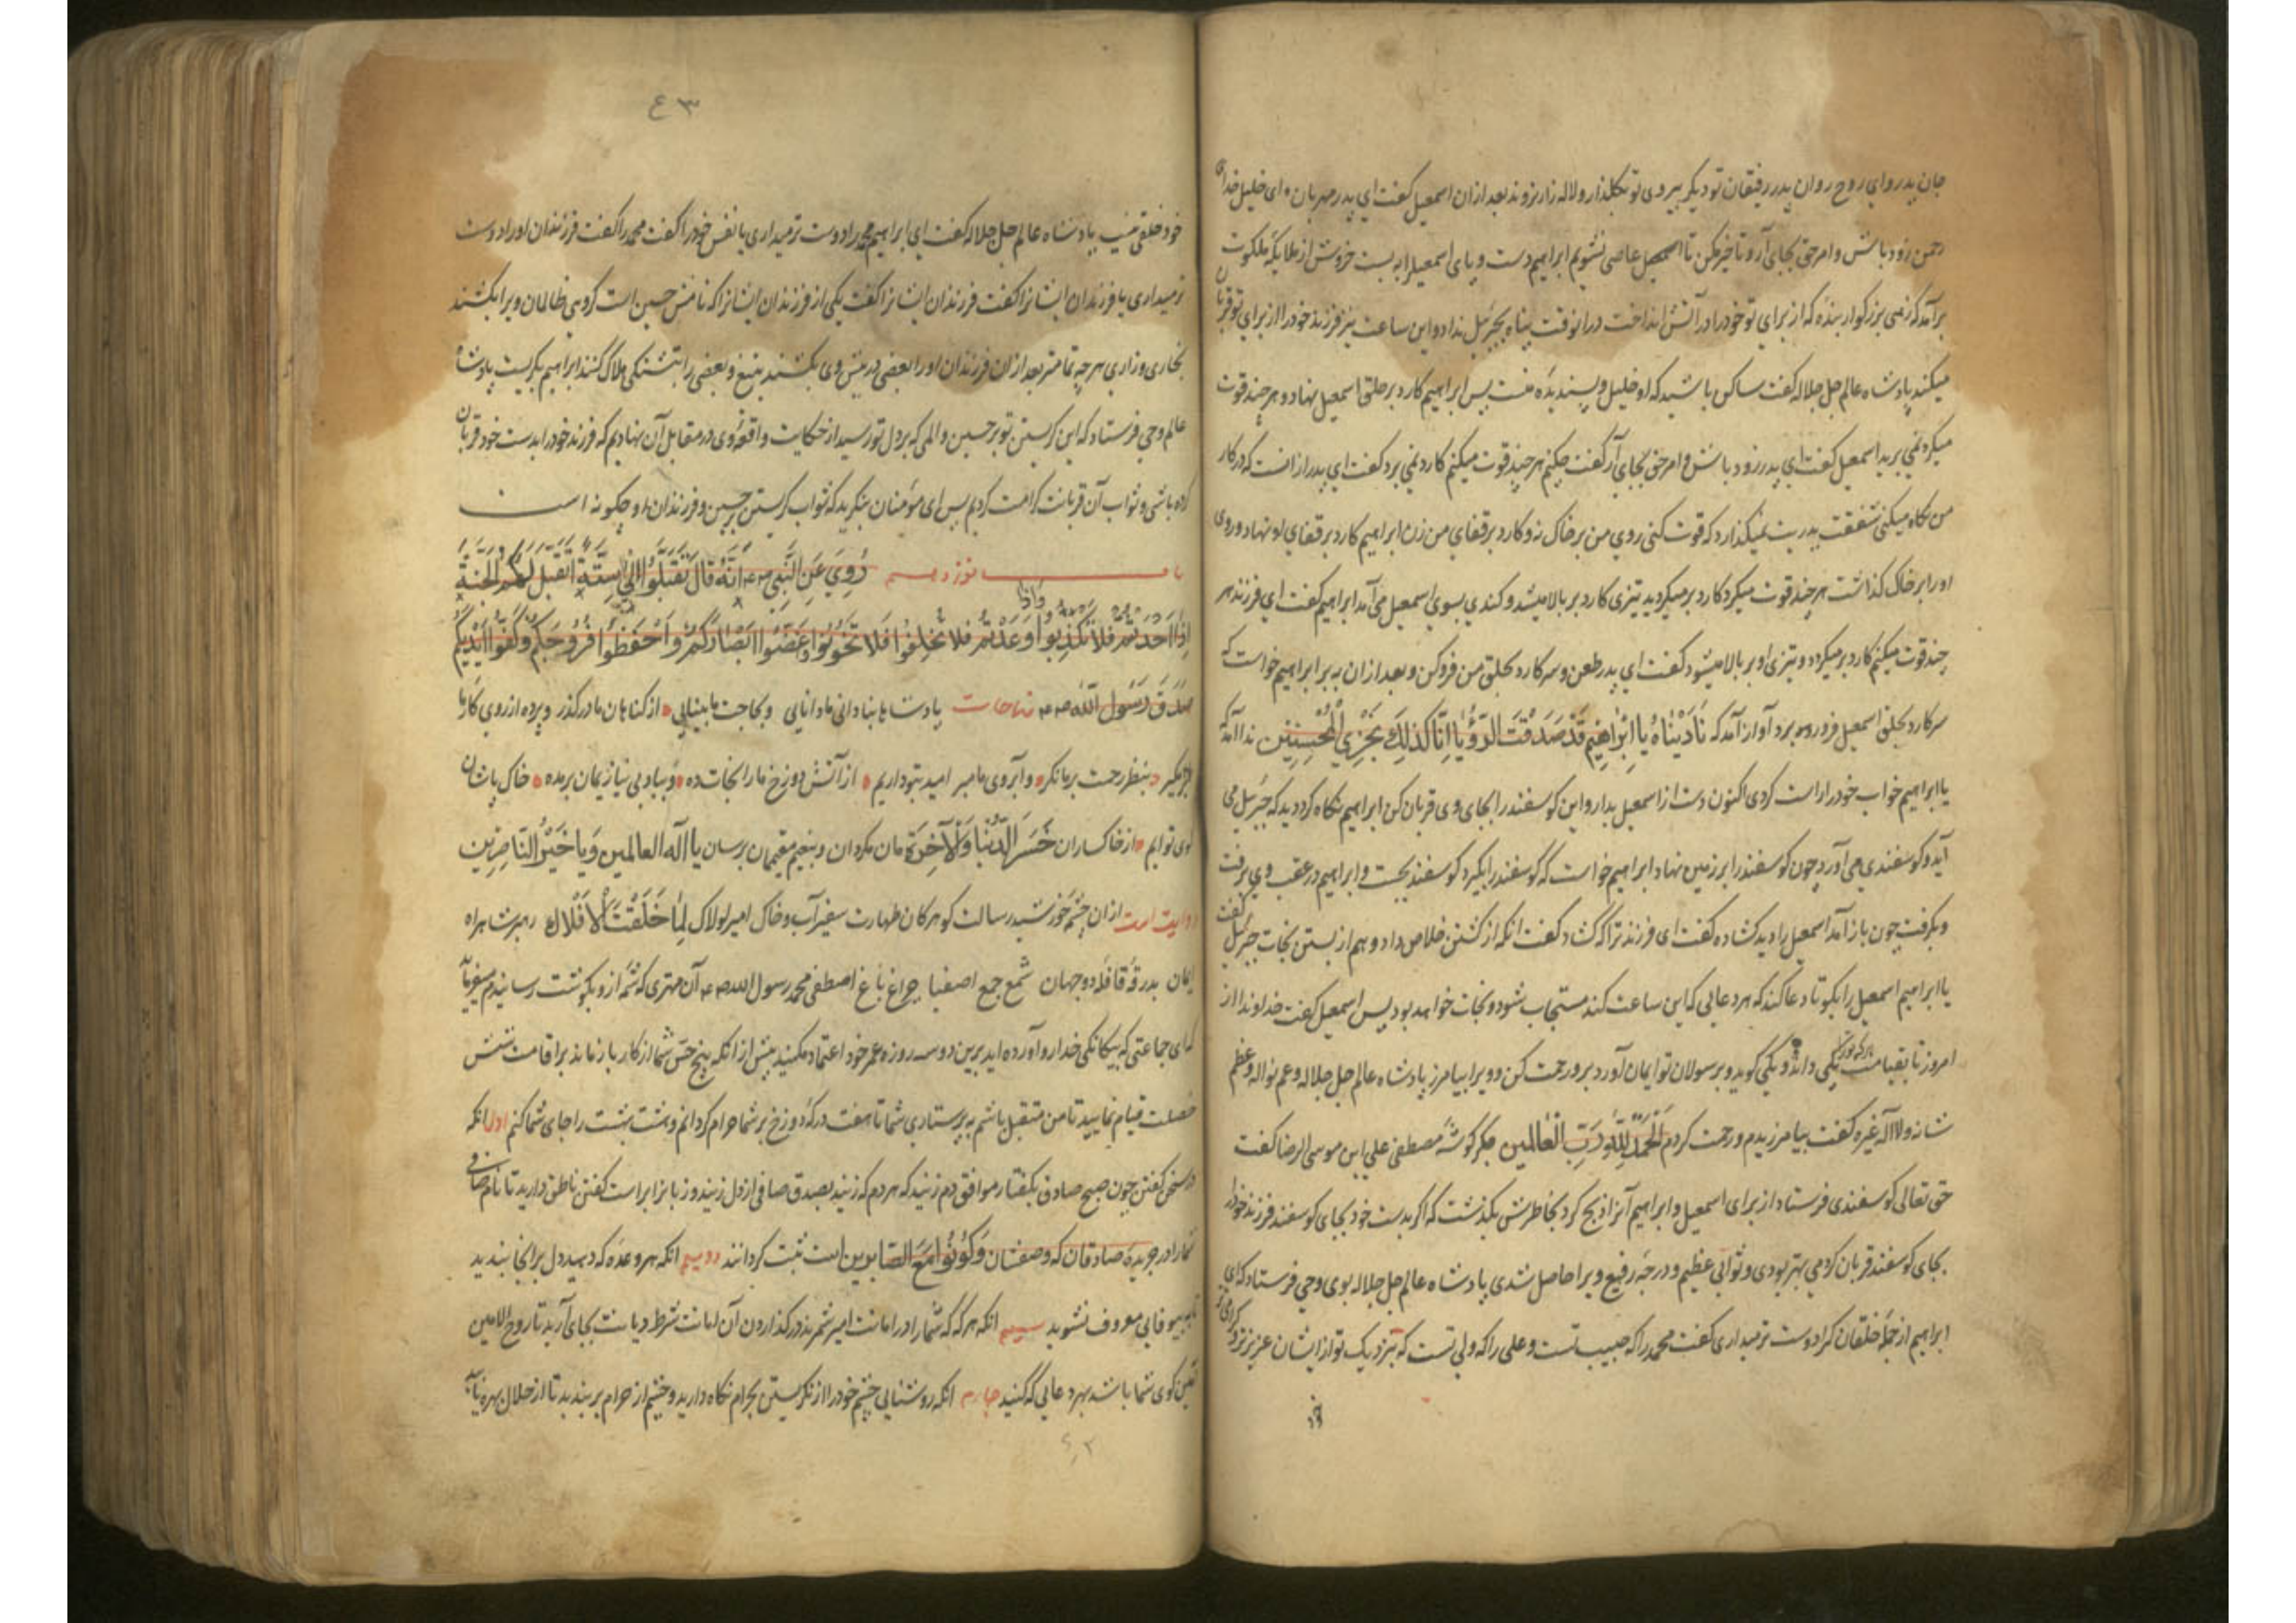 جان پدر و ای روح روان پدر رفیقان تو دیگر بیروی تو بگلذار و لاله زار نروند بعد ازان اسمعیل گفت ای پدر مهربان ای خلیل خدای
رحمن زود باش و امر حق بجای آر و تاخیر مکن تا اسمعیل عاصی نشویم ابراهیم دست و پای اسمعیل را به بست خروش از ملایکه ملکوت
برآمد که زهی بزرگوار بنده که از برای تو خود را در آتش انداخت دران وقت پناه بجبرئیل نداد و این ساعت نیز فرزند خود را از برای تو قربان
میکند پادشاه عالم جل جلاله گفت ساکن باشید که او خلیل و پسندیده منست پس ابراهیم کارد بر حلق اسمعیل نهاد و هر چند قوت
میکرد نمی برید اسمعیل گفت ای پدر زود باش و امر حق بجای آر گفت چکنم هر چند قوت میکنم کارد نمی برد گفت ای پدر ازانست که در کار
من نگاه میکنی شفقت پدریت نمیگذارد که قوت کنی روی من بر خاک نه و کارد بر قفای من زن ابراهیم کارد بر قفای او نهاد و روی
او را بر خاک گذاشت هر چند قوت میکرد کارد بر میگردید تیزی کارد بر بالا میشد و کندی بسوی اسمعیل می آمد ابراهیم گفت ای فرزند هر
چند قوت میکنم کارد بر میگردد و تیزی او بر بالا میشود گفت ای پدر طعن و سر کارد بحلق من فرو کن و بعد ازان ابراهیم خواست که
سر کارد بحلق اسمعیل فرو برد آواز آمد که نَادَيْنَاهُ يَا اِبْرَاهِيمُ قَدْ صَدَّقْتَ الرُّؤْيَا اِنَّا كَذٰلِكَ نَجْزِي الْمُحْسِنِينَ ندا آمد که
یا ابراهیم خواب خود را راست کردی اکنون دست از اسمعیل بدار و این گوسفند را بجای وی قربان کن ابراهیم نگاه کرد دید که جبرئیل می
آید و گوسفندی می آورد چون گوسفند را بر زمین نهاد ابراهیم خواست که گوسفند را بگیرد گوسفند بجست و ابراهیم در عقب وی برفت
و بگرفت چون باز آمد اسمعیل را دید گشاده گفت ای فرزند ترا که گشاد گفت انکه از کشتن خلاص داد و هم از بستن نجات جبرئیل گفت
یا ابراهیم اسمعیل را بگو تا دعا کند که هر دعایی که این ساعت کند مستجاب شود و نجات خواهد بود پس اسمعیل گفت خداوندا از
امروز تا بقیامت هر که ترا یکی داند و یکی گوید و برسولان تو ایمان آورد برو رحمت کن و ویرا بیامرز پادشاه عالم جل جلاله و عم نواله و عظم
شانه ولا اله غیره گفت بیامرزیدم و رحمت کردم اَلْحَمْدُ لِلّٰهِ رَبِّ الْعَالَمِين جگر گوشه مصطفی علی ابن موسی الرضا گفت
حق تعالی گوسفندی فرستاد از برای اسمعیل و ابراهیم آنرا ذبح کرد بخاطرش بگذشت که اگر بدست خود بجای گوسفند فرزند خود را
بجای گوسفند قربان کردمی بهتر بودی و ثوابی عظیم و درجه رفیع ویرا حاصل شدی پادشاه عالم جل جلاله بوی وحی فرستاد که ای
ابراهیم از جمله خلقان کرا دوست تر میداری گفت محمد را که حبیب تست و علی را که ولی تست که بنزدیک تو از ایشان عزیزتر و گرامی تر
خود
۴۳
خود خلقی نیست پادشاه عالم جل جلاله گفت ای ابراهیم محمد را دوست تر میداری یا نفس خود را گفت محمد را گفت فرزندان او را دوست
تر میداری یا فرزندان ایشانرا گفت فرزندان ایشانرا گفت یکی از فرزندان ایشانرا که نامش حسین است گروهی ظالمان ویرا بکشند
بخاری و زاری هر چه تمامتر بعد ازان فرزندان او را بعضی در پیش وی بکشند بتیغ و بعضی را بتشنگی هلاک کنند ابراهیم بگریست پادشاه
عالم وحی فرستاد که این گریستن تو بر حسین و المی که بر دل تو رسید از حکایت واقعه وی در مقابل آن نهادیم که فرزند خود را بدست خود قربان
کرده باشی و ثواب آن قربانت کرامت کردیم پس ای مؤمنان بنگرید که ثواب گریستن بر حسین و فرزندان او چگونه است
نوزدهم رُوِيَ عَنِ النَّبِيِّ انَّهُ قَالَ تَقَبَّلُوا اِلَيَّ سِتَّةً اَتَقَبَّلْ لَكُمُ الْجَنَّةَ
اِذَا حَدَّثْتُمْ فَلَا تَكْذِبُوا وَاِذَا وَعَدْتُمْ فَلَا تُخْلِفُوا فَلَا تَخُونُوا وَغُضُّوا اَبْصَارَكُمْ وَاحْفَظُوا فُرُوجَكُمْ وَكُفُّوا اَيْدِيَكُمْ
صَدَقَ رَسُولُ اللّٰهِ مناجات پادشاها بنادانی ما دانایی و بحاجت ما بینایی از گناهان ما در گذر و پرده از روی کار ما
بر مگیر بنظر رحمت بر ما نگر و آبروی ما مبر امید بتو داریم از آتش دوزخ ما را نجات ده و بباد بی نیازیمان بر مده خاک پاشان
کوی توایم از خاکساران خَسِرَ الدُّنْيَا وَالْآخِرَة مان مگردان و بنعیم مقیمان برسان يا اله العالمين وَيَا خَيْرَ النَّاصِرِين
روایت است ازان چشمه خورشید رسالت گوهر کان طهارت سفیر آب و خاک امیر لولاک لَمَا خَلَقْتُ الْاَفْلَاك رهبر شاهراه
ایمان بدرقه قافله دو جهان شمع جمع اصفیا چراغ باغ اصطفی محمد رسول الله آن مهتری که شمه ازو بگوشت رسانیدم میفرماید
که ای جماعتی که بیگانگی خدا رو آورده اید برین دو سه روزه عمر خود اعتماد مکنید پیش از انکه پنج حس شما از کار باز ماند بر اقامت شش
خصلت قیام نمایید تا من متقبل باشم به پرستاری شما تا هفت درکه دوزخ بر شما حرام گردانم و هشت بهشت را جای شما کنم اول انکه
در سخن گفتن چون صبح صادق بگفتار موافق دم زنید که هر دم که زنید بصدق صافی از دل زنید و زبانرا براست گفتن ناطق دارید تا نام
شما را در جریده صادقان که وصفشان وَكُونُوا مَعَ الصَّابرين است ثبت گردانند دویم انکه هر وعده که دهید دل بر انجا بندید
تا به بیوفایی معروف نشوید سیم انکه هر که شما را در امانت امیر شمرند در گذاردن آن امانت شرط دیانت بجای آرید تا روح الامین
آمین گوی شما باشد بهر دعایی که کنید چهارم انکه روشنایی چشم خود را از نگریستن بحرام نگاه دارید و چشم از حرام بر بندید تا از حلال بهره